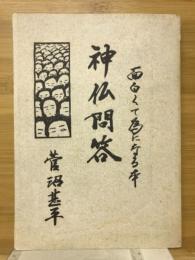 面白くて為になる本
神仏問答
菅沼甚平